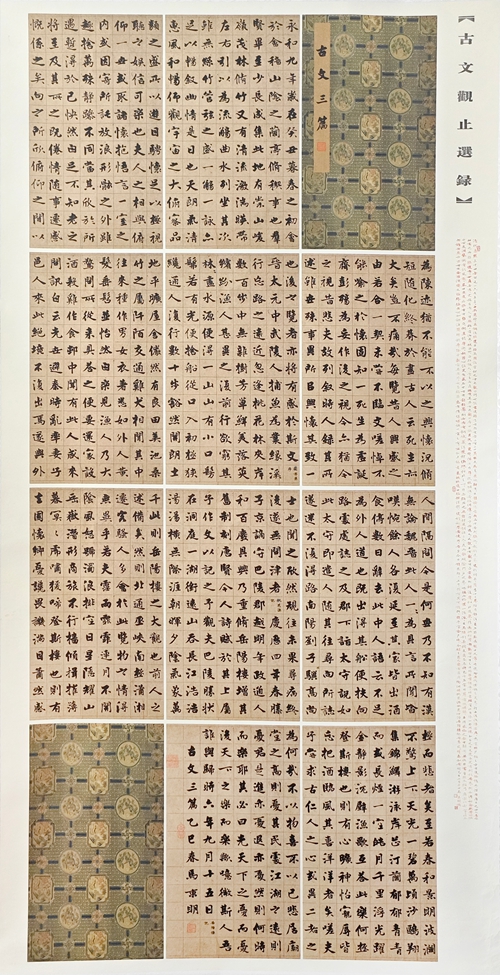 【古文觀止選録】
古文三篇
永和九年歲在癸丑暮春之初會
於會稽山陰之蘭亭脩禊事也羣
賢畢至少長咸集此地有崇山峻
嶺茂林脩竹又有清流激湍暎帶
左右引以為流觴曲水列坐其次
雖無絲竹管弦之盛一觴一詠亦
足以暢敘幽情是日也天朗氣清
惠風和暢仰觀宇宙之大俯察品
類之盛所以遊目騁懷足以極視
聽之娛信可樂也夫人之相與俯
仰一世或取諸懷抱悟言一室之
內或因寄所託放浪形骸之外雖
趣捨萬殊靜躁不同當其欣於所
遇暫得於己快然自足不知老之
將至及其所之既倦情隨事遷感
慨係之矣向之所欣俯仰之間以
為陳迹猶不能不以之興懷況脩
短隨化終期於盡古人云死生亦
大矣豈不痛哉每覽昔人興感之
由若合一契未嘗不臨文嗟悼不
能喻之於懷固知一死生為虛誕
齊彭殤為妄作後之視今亦猶今
之視昔悲夫故列敘時人錄其所
述雖世殊事異所以興懷其致一
也後之覽者亦將有感於斯文
晉太元中武陵人捕魚為業緣溪
行忘路之遠近忽逢桃花林夾岸
數百步中無雜樹芳草鮮美落英
繽紛漁人甚異之復前行欲窮其
林林盡水源便得一山山有小口髣
髴若有光便捨船從口入初極狹
纔通人復行數十步豁然開朗土
地平曠屋舍儼然有良田美池桑
竹之屬阡陌交通雞犬相聞其中
往來種作男女衣著悉如外人黃
髮垂髫並怡然自樂見漁人乃大
驚問所從來具答之便要還家設
酒殺雞作食邨中聞有此人咸來
問訊自云先世避秦時亂率妻子
邑人來此絕境不復出焉遂與外
人間隔問今是何世乃不知有漢
無論魏晉此人一一為具言所聞皆
嘆惋餘人各復延至其家皆出酒
食停數日辭去此中人語云不足
為外人道也既出得其船便扶向
路處處誌之及郡下詣太守說如
此太守即遣人隨其往尋向所誌
遂迷不復得路南陽劉子驥高尚
士也聞之欣然規往未果尋病終
後遂無問津者慶曆四年春滕
子京謫守巴陵郡越明年政通人
和百廢具興乃重修岳陽樓增其
舊制刻唐賢今人詩賦於其上屬
予作文以記之予觀夫巴陵勝狀
在洞庭一湖銜遠山吞長江浩浩
湯湯橫無際涯朝暉夕陰氣象萬
千此則岳陽樓之大觀也前人之
述備矣然則北通巫峽南極瀟湘
遷客騷人多會於此覽物之情得
無異乎若夫霪雨霏霏連月不開
陰風怒號濁浪排空日星隱耀山
岳潛形商旅不行檣傾楫摧薄
暮冥冥虎嘯猿啼登斯樓也則有
去國懷鄉憂讒畏譏滿目蕭然感
極而悲者矣至若春和景明波瀾
不驚上下天光一碧萬頃沙鷗翔
集錦鱗游泳岸芷汀蘭郁郁青青
而或長煙一空皓月千里浮光躍
金靜影沉璧漁歌互答此樂何極
登斯樓也則有心曠神怡寵辱皆
忘把酒臨風其喜洋洋者矣嗟夫
予嘗求古仁人之心或異二者之
為何哉不以物喜不以己悲居廟
堂之高則憂其民處江湖之遠則
憂其君是進亦憂退亦憂然則何時
而樂耶其必曰先天下之憂而憂
後天下之樂而樂歟噫微斯人吾
誰與歸時六年九月十五日
古文三篇乙巳春馬宗明